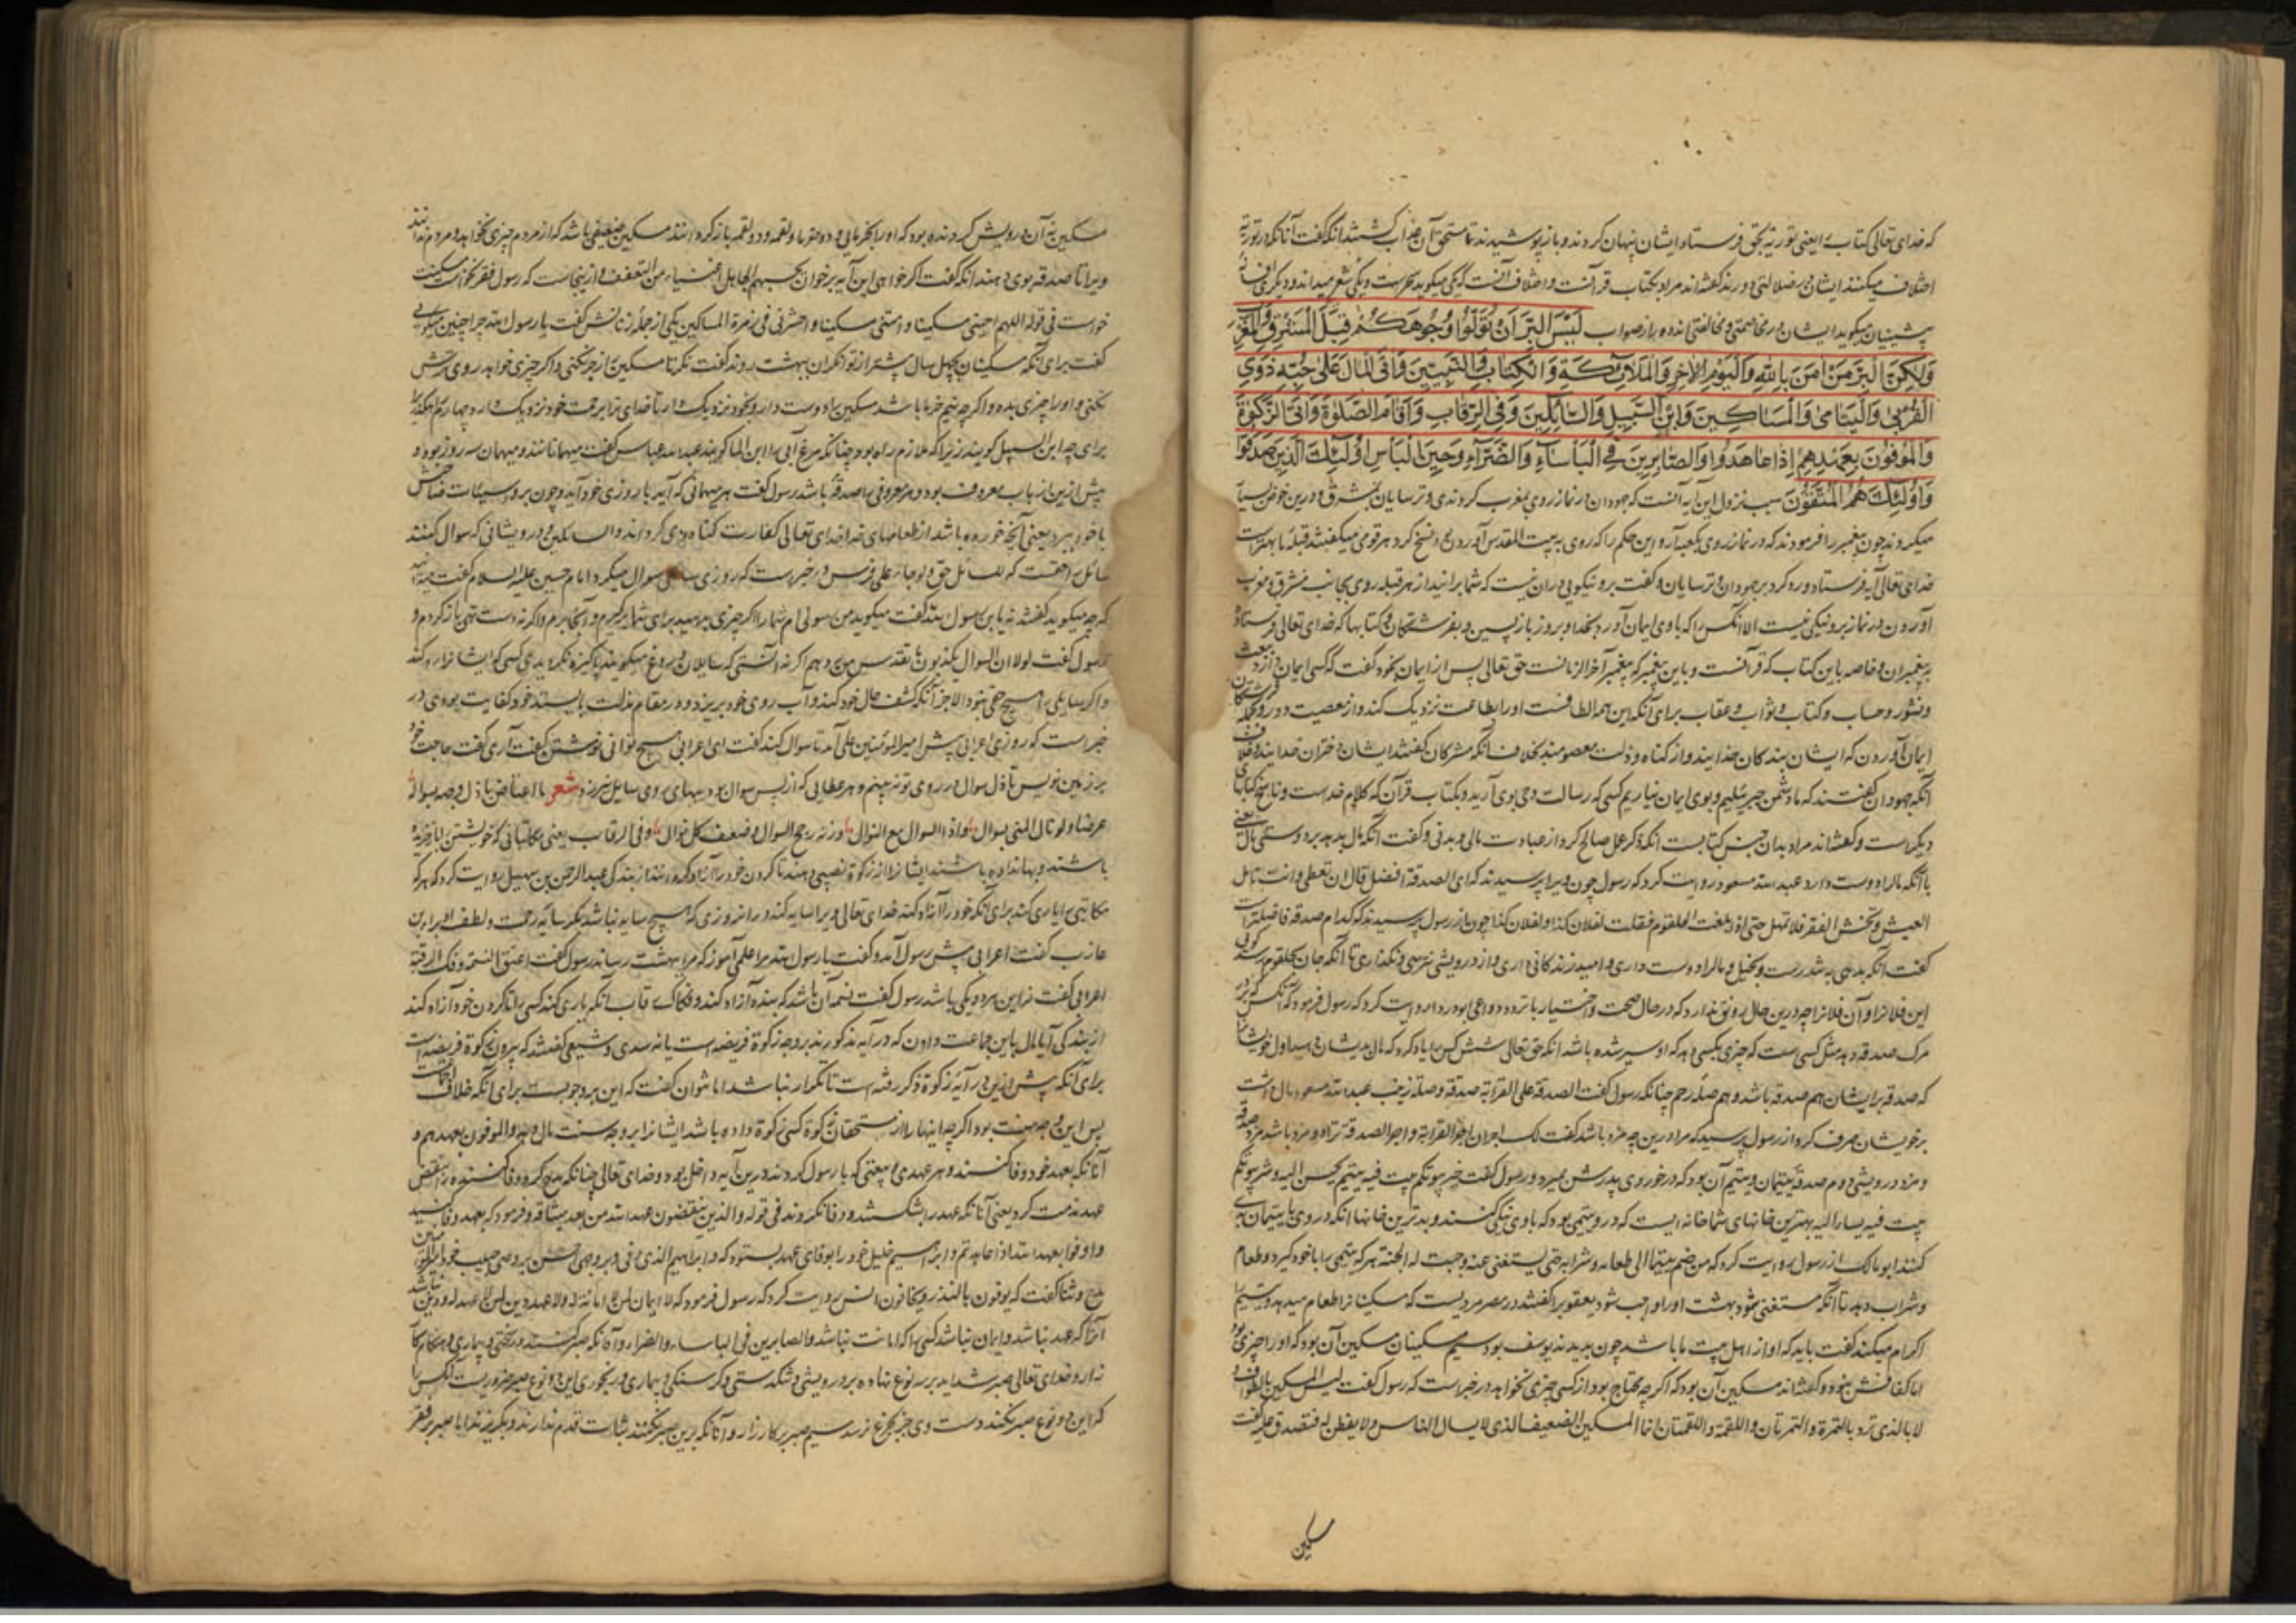 که خدای تعالی کتاب را یعنی توریة بحق فرستاد و ایشان پنهان کردند و باز پوشیدند تا مستحق آن عذاب گشتند آنکه گفت آنانکه در توریة
اختلاف میکنند ایشان در ضلالتی دورند و گفته‌اند مراد بکتاب قرآنست و اختلاف آنست که یکی میگوید سحرست و یکی شعر میداند و دیگری
پیشینیان میگوید ایشان در مخاصمتی و مخالفتی‌اند دور از صواب لَیْسَ الْبِرَّ اَنْ تُوَلُّوا وُجُوهَکُمْ قِبَلَ الْمَشْرِقِ وَالْمَغْرِبِ
وَلٰکِنَّ الْبِرَّ مَنْ اٰمَنَ بِاللّٰهِ وَالْیَوْمِ الْاٰخِرِ وَالْمَلَائِکَةِ وَالْکِتَابِ وَالنَّبِیّینَ وَاٰتَی الْمَالَ عَلٰی حُبِّهِ ذَوِی
الْقُرْبٰی وَالْیَتَامٰی وَالْمَسَاکِینَ وَابْنَ السَّبِیلِ وَالسَّائِلِینَ وَفِی الرِّقَابِ وَاَقَامَ الصَّلٰوةَ وَاٰتَی الزَّکٰوةَ
وَالْمُوفُونَ بِعَهْدِهِمْ اِذَا عَاهَدُوا وَالصَّابِرِینَ فِی الْبَأْسَاءِ وَالضَّرَّاءِ وَحِینَ الْبَأْسِ اُولٰئِکَ الَّذِینَ صَدَقُوا
وَاُولٰئِکَ هُمُ الْمُتَّقُونَ سبب نزول این آیه آنست که جهودان در نماز روی بمغرب کردندی و ترسایان بمشرق و درین خوض بسیار
میکردند چون پیغمبر را فرمودند که در نماز روی بکعبه آر و این حکم را که روی به بیت المقدس آوردن بود نسخ کرد هر قومی میگفتند قبلۀ ما بهترست
خدای تعالی آیه فرستاد و رد کرد بر جهودان و ترسایان و گفت بر و نیکویی در آن نیست که شما برانید از هر قبله روی بجانب مشرق و مغرب
آوردن در نماز بر و نیکی نیست الا آنکس را که با وی ایمان آورد بخدا و بروز بازپسین و بفرشتگان و کتابها که خدای تعالی فرستاد
به پیغمبران و خاصه باین کتاب که قرآنست و باین پیغمبر که پیغمبر آخر الزمانست حق تعالی پس از ایمان بخود گفت که کسی ایمان آرد ببعث
و نشور و حساب و کتاب و ثواب و عقاب برای آنکه این همه الطافست او را بطاعت نزدیک کند و از معصیت دور و بفرشتگان
ایمان آوردن که ایشان بندکان خدایند و از کناه و ذلت معصومند بخلاف آنکه مشرکان گفتند ایشان دختران خدایند
آنکه جهودان گفتند که ما دشمن جبرئیلیم و بوی ایمان نیاریم کسی که رسالت و وحی بوی آرید و بکتاب قرآن که کلام خداست و ناسخ کتابهای
دیگرست و گفته‌اند مراد بدان جنس کتابست آنکه ذکر عمل صالح کرد از عبادت مالی و بدنی و گفت آنکه مال بدهد بر دوستی مال یعنی
با آنکه مال را دوست دارد عبد الله مسعود روایت کرد که رسول چون ویرا پرسیدند که ای الصدقة افضل قال ان تعطی و انت تامل
العیش و تخشی الفقر فلا تمهل حتی اذا بلغت الحلقوم فقلت لفلان کذا و لفلان کذا چون از رسول پرسیدند که کدام صدقه فاضلترست
گفت آنکه بدهی و تندرست و بخیل و مال را دوست داری و امید زندکانی داری و از درویشی ترسی و نگذاری تا آنکه جان بحلقوم رسد گویی
این فلانرا و آن فلانرا چه درین حال رونق ندارد که در حال صحت و اختیار ابو دردا روایت کرد که رسول فرمود که آنکس که بر در
مرک صدقه دهد مثل کسی است که چیزی بکسی دهد که او سیر شده باشد آنکه حق تعالی شش کس را یاد کرد که مال بدیشان دهید اول خویشان
که صدقه بر ایشان هم صدقه باشد و هم صلۀ رحم چنانکه رسول گفت الصدقة علی القرابة صدقة و صلة زینب عبد الله مسعود مال داشت
بر خویشان صرف کرد از رسول پرسید که مرا درین چه مزد باشد گفت لک اجران اجر القرابة و اجر الصدقة ترا دو مزد باشد مزد صدقه
و مزد درویشی دوم صدقۀ یتیمان و یتیم آن بود که در خوردی پدرش بمیرد و رسول گفت خیر بیوتکم بیت فیه یتیم یحسن الیه و شر بیوتکم
بیت فیه یساء الیه بهترین خانهای شما خانه‌ایست که درو یتیمی بود که با وی نیکی کنند و بدترین خانها آنکه در وی با یتیمان بدی
کنند ابو مالک از رسول روایت کرد که من ضم یتیما الی طعامه و شرابه حتی یستغنی عنه وجبت له الجنة هر که یتیمی را با خود گیرد و طعام
و شراب دهد تا آنکه مستغنی شود بهشت او را واجب شود یعقوب را گفتند در مصر مردیست که مسکینانرا طعام میدهد و یتیم را
اکرام میکند گفت باید که او از اهل بیت ما باشد چون بدیدند یوسف بود سیم مسکینان مسکین آن بود که او را چیزی بود
اما کفافش نبود و گفته‌اند مسکین آن بود که اکرچه محتاج بود از کسی چیزی نخواهد در خبر است که رسول گفت لیس المسکین بالطواف و
لا بالذی ترد بالتمرة و التمرتان و اللقمة و اللقمتان انما المسکین الضعیف الذی لا یسال الناس و لا یفطن له فتصدق علیه گفت
مسکین
مسکین نه آن درویش گردنده بود که او را بخرمایی و دو خرما و لقمه و دو لقمه باز گردانند مسکین ضعیفی باشد که از مردم چیزی نخواهد و مردم ندانند
ویرا تا صدقه بوی دهند آنکه گفت اکر خواهی این آیه برخوان یحسبهم الجاهل اغنیاء من التعفف و ازینجاست که رسول فقر نخواست مسکنت
خواست فی قوله اللهم احینی مسکینا و امتنی مسکینا و احشرنی فی زمرة المساکین یکی از جملۀ زنانش گفت یا رسول الله چرا چنین میگویی
گفت برای آنکه مسکینان بچهل سال پیشتر از توانگران ببهشت روند گفت نگر تا مسکین را زجر نکنی و اکر چیزی خواهد روی ترش
نکنی و او را چیزی بده و اکرچه نیم خرما باشد مسکین را دوست دار و بخود نزدیک دار تا خدای ترا برحمت خود نزدیک دارد چهارم راهگذریان
برای چه ابن السبیل گویند زیرا که ملازم راه بود چنانکه مرغ آبی را ابن الماء گویند عبد الله عباس گفت میهمانانند و میهمان سه روز بود و
بیش ازین از باب معروف بود و هر معروفی صدقه باشد رسول گفت هر میهمانی که آید با روزی خود آید و چون برود سیئات صاحبش
با خود ببرد یعنی آنچه خورده باشد از طعامهای خدا خدای تعالی کفارت کناه وی کرداند و السائلین و درویشانی که سوال کنند
سائل را حقست که للسائل حق و لو جاء علی فرس و در خبر است که روزی سائلی سوال میکرد امام حسین علیه السلام گفت میدانید
که چه میگوید گفتند نه یا بن رسول الله گفت میگوید من رسولی‌ام شما را اکر چیزی بدهید برای شما برگیرم و آنجا برم و اکر نه دست تهی باز گردم و
رسول گفت لولا ان السوال یکذبون ما تقدس من ردهم اکر نه آنستی که سایلان دروغ میگویند پاکیزه نگردیدی کسی که ایشانرا رد کند
و اکر سایل را هیچ حقی نبود الا جز آنکه کشف حال خود کند و آب روی خود بریزد و در مقام مذلت بایستد خود کفایت بودی در
خبر است که روزی اعرابی پیش امیر المؤمنین علی آمد تا سوال کند گفت ای اعرابی هیچ توانی نوشتن گفت آری گفت حاجت خود
بر زمین نویس تا ذل سوال در روی تو نه بینم و هر عطایی که از پس سوال بود بهای روی سایل نیرزد شعر ما اعتاض باذل وجهه بسواله
عوضا و لو نال الغنی بسوال و اذا السوال مع النوال وزنته رجح السوال و خف کل نوال و فی الرقاب یعنی مکاتبانی که خویشتن باز خریده
باشند و بها نداده باشند ایشانرا از زکوة نصیبی دهند تا گردن خود را آزاد گردانند از بندگی عبد الرحمن بن سهیل روایت کرد که هر که
مکاتبی را یاری کند برای آنکه خود را آزاد کند خدای تعالی ویرا سایه کند در آنروزی که هیچ سایه نباشد مگر سایۀ رحمت و لطف او براء بن
عازب گفت اعرابی پیش رسول آمد و گفت یا رسول الله مرا علمی آموز که مرا ببهشت رساند رسول گفت اعتق النسمة و فک الرقبة
اعرابی گفت نه این هر دو یکی باشد رسول گفت نسمه آن باشد که بنده آزاد کند و فکاک رقاب آنکه یاری کند کسی را تا گردن خود آزاد کند
از بندگی آیا مال باین جماعت دادن که در آیه مذکورند بر وجه زکوة فریضه است یا نه سدی و شعبی گفتند که بیرون زکوة فریضه است
برای آنکه پیش ازین در آیه زکوة ذکر رفته است تا تکرار نباشد اما نتوان گفت که این بر وجوبست برای آنکه خلاف اجماعست
پس این وجه سنت بود اکرچه اینها را از مستحقان زکوة کسی زکوة داده باشد ایشانرا بر وجه سنت مال دهد و الموفون بعهدهم و
آنانکه بعهد خود وفا کنند و هر عهدی و بیعتی که با رسول کردند درین آیه داخل بود و خدای تعالی چنانکه مدح کرد وفا کننده را نقض
عهد مذمت کرد یعنی آنانکه عهد را بشکستند و وفا نکردند فی قوله و الذین ینقضون عهد الله من بعد میثاقه و فرمود که بعهد وفا کنید
و اوفوا بعهد الله اذا عاهدتم و ابراهیم خلیل خود را بوفای عهد بستود که و ابراهیم الذی وفی و بر وجهی احسن بر وصی حبیب خود
مدح و ثنا گفت که یوفون بالنذر و یخافون انس روایت کرد که رسول فرمود که لا ایمان لمن لا امانة له و لا دین لمن لا عهد له و دین نباشد
آنرا که عهد نباشد و ایمان نباشد کسی را که امانت نباشد و الصابرین فی الباساء و الضراء و آنانکه صبر کنند در سختی و بیماری و هنگام کا
رزار و خدای تعالی صبر شداید بر سه نوع نهاده بر درویشی و تنگدستی و گرسنگی و بیماری و رنجوری این دو نوع صبر ضروریست آنکس را
که این دو نوع صبر نکند دست وی جز بجزع نرسد سیم صبر بر کارزار و آنانکه برین صبر نکنند ثبات قدم ندارند و بگریزند اما صبر بر فقر